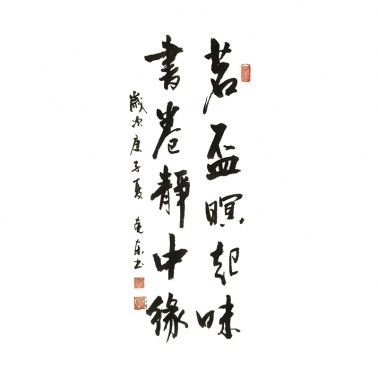 茗盃暝起味
書卷靜中緣
歲次庚子夏